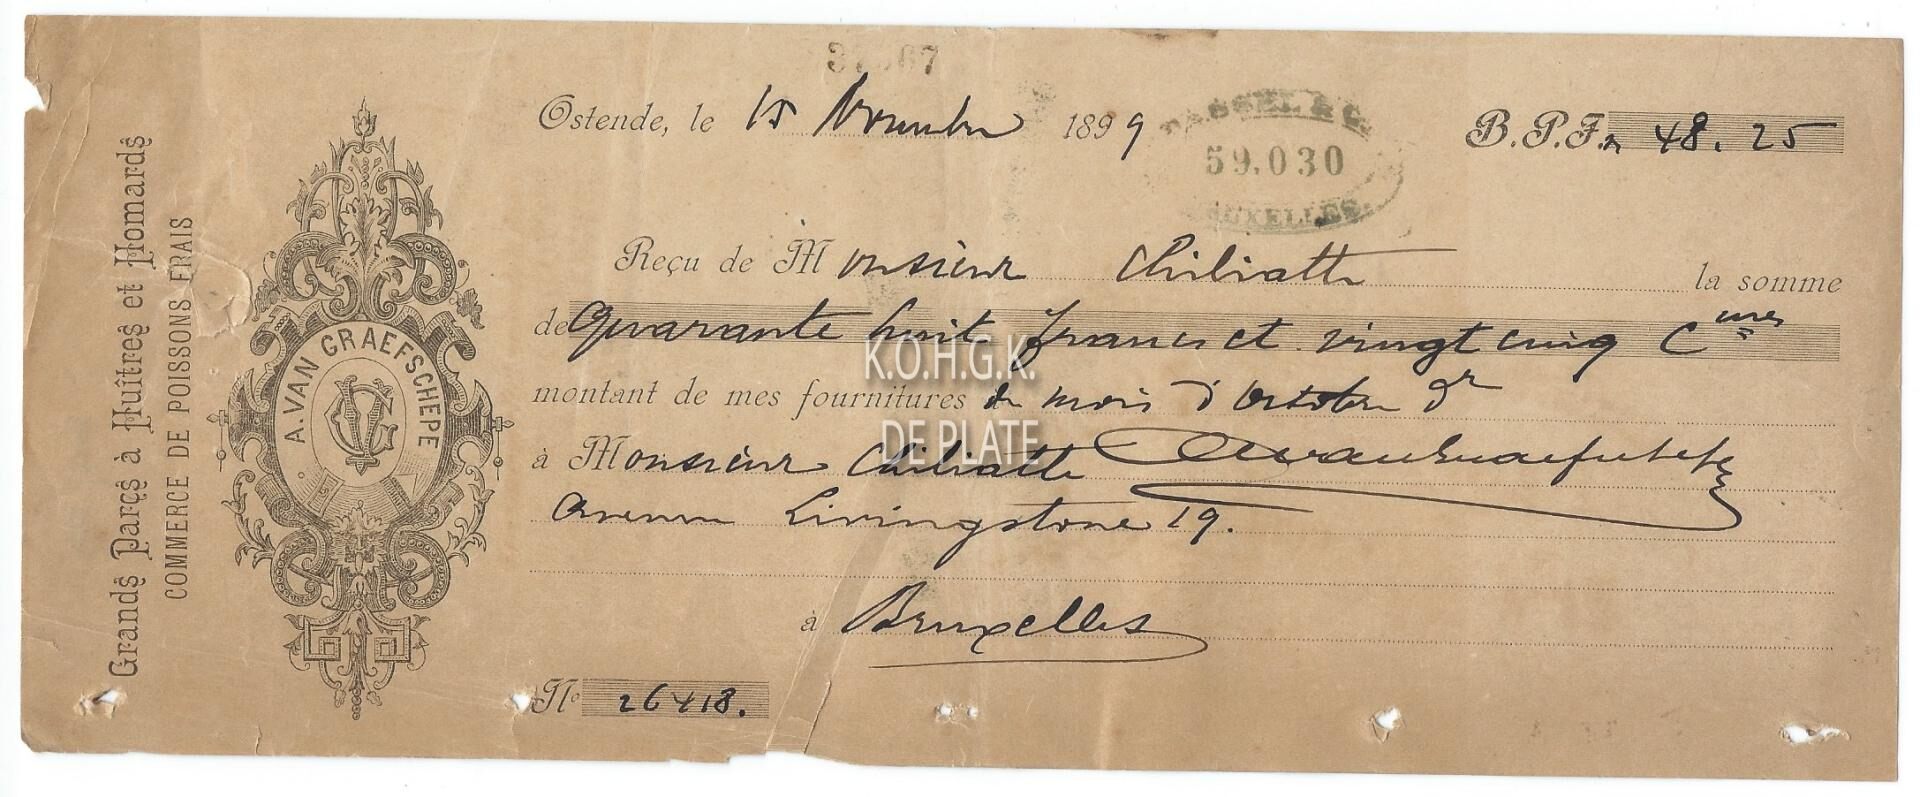 Grands Parcs à Huîtres et Homards
COMMERCE DE POISSONS FRAIS
A. VAN GRAEFSCHEPE
VG
Ostende, le 15 Novembre 1899
59.030
B.P.F. 48.25
Reçu de Monsieur Chiliatte la somme
de quarante huit francs et vingt cinq C mes
montant de mes fournitures du mois d'octobre dr
à Monsieur Chiliatte A Van Graefschepe
Avenue Livingstone 19.
à Bruxelles
No 26418.
K.O.H.G.K.
DE PLATE